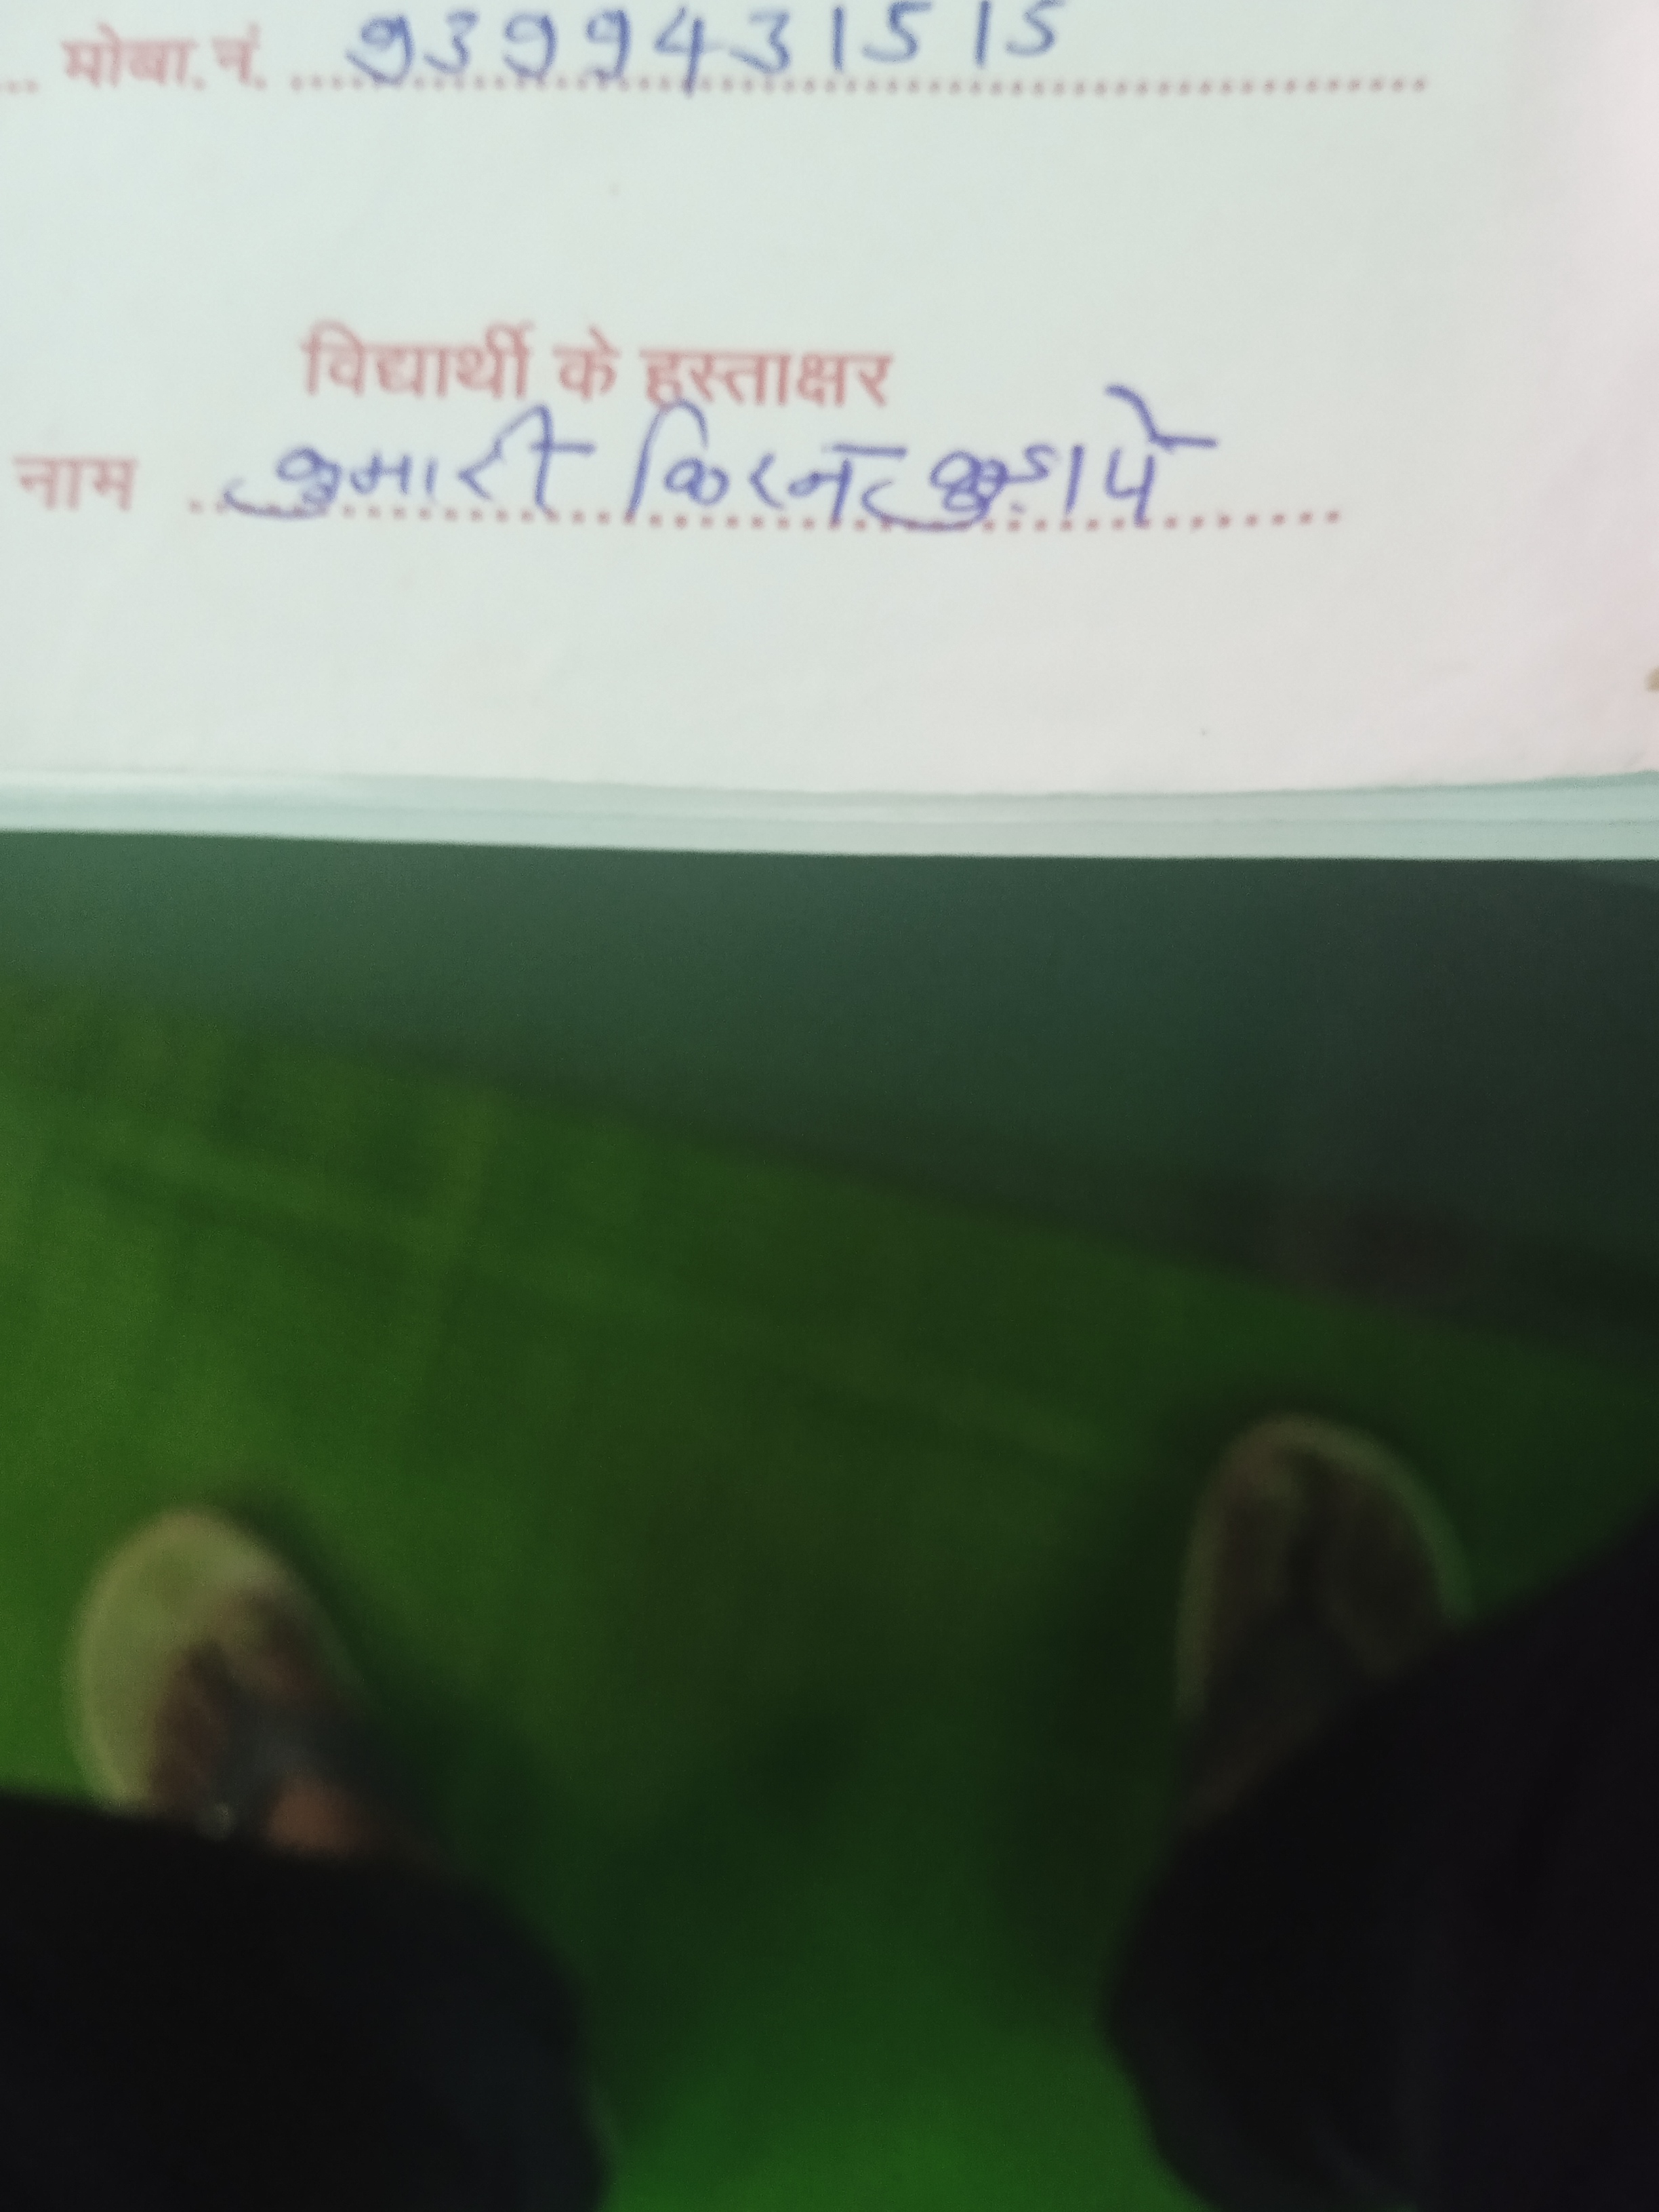 मोबा. नं. 9399431515
विद्यार्थी के हस्ताक्षर
नाम कुमारी किरन कुड़ापे